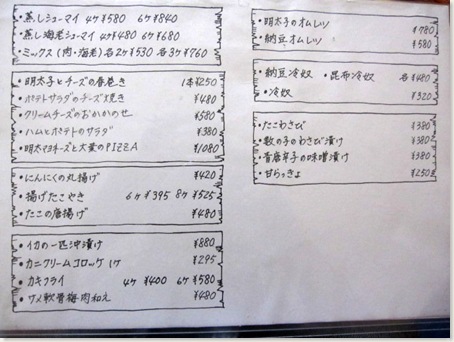 ・蒸しシューマイ 4ヶ¥580 6ヶ¥840
・蒸し海老シューマイ 4ヶ¥480 6ヶ¥680
・ミックス(肉・海老)各2ヶ¥530 各3ヶ¥760
・明太子とチーズの春巻き 1本¥250
・ポテトサラダのチーズ焼き ¥480
・クリームチーズのおかかのせ ¥580
・ハムとポテトのサラダ ¥380
・明太マヨネーズと大葉のPIZZA ¥1080
・にんにくの丸揚げ ¥420
・揚げたこやき 6ヶ¥395 8ヶ¥525
・たこの唐揚げ ¥480
・イカの一匹沖漬け ¥880
・カニクリームコロッケ 1ヶ ¥295
・カキフライ 4ヶ ¥400 6ヶ¥580
・サメ軟骨梅肉和え ¥480
・明太子のオムレツ ¥780
・納豆オムレツ ¥580
・納豆冷奴 ・昆布冷奴 各¥480
・冷奴 ¥320
・たこわさび ¥380
・数の子のわさび漬け ¥380
・青唐辛子の味噌漬け ¥380
・甘らっきょ ¥250